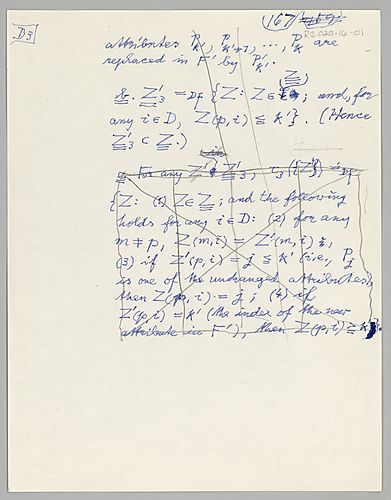 D3
167
RC 020-16-01
attributes P_k', P_k'+1, ..., P_k are
replaced in F' by P'_k'.
b. Z'_3 =Df {Z: Z ∈ Z_3; and, for
any i ∈ D, Z(p,i) ≦ k'}. (Hence
Z'_3 ⊂ Z_3.)
c. For any Z' ∈ Z'_3, τ_3({Z'}) =Df
{Z: (1) Z ∈ Z_3; and the following
holds for any i ∈ D: (2) for any
m ≠ p, Z(m,i) = Z'(m,i);
(3) if Z'(p,i) = j ≦ k' (i.e., P_j
is one of the unchanged attributes),
then Z(p,i) = j; (4) if
Z'(p,i) = k' (the index of the new
attribute in F'), then Z(p,i) ≧ k'}.